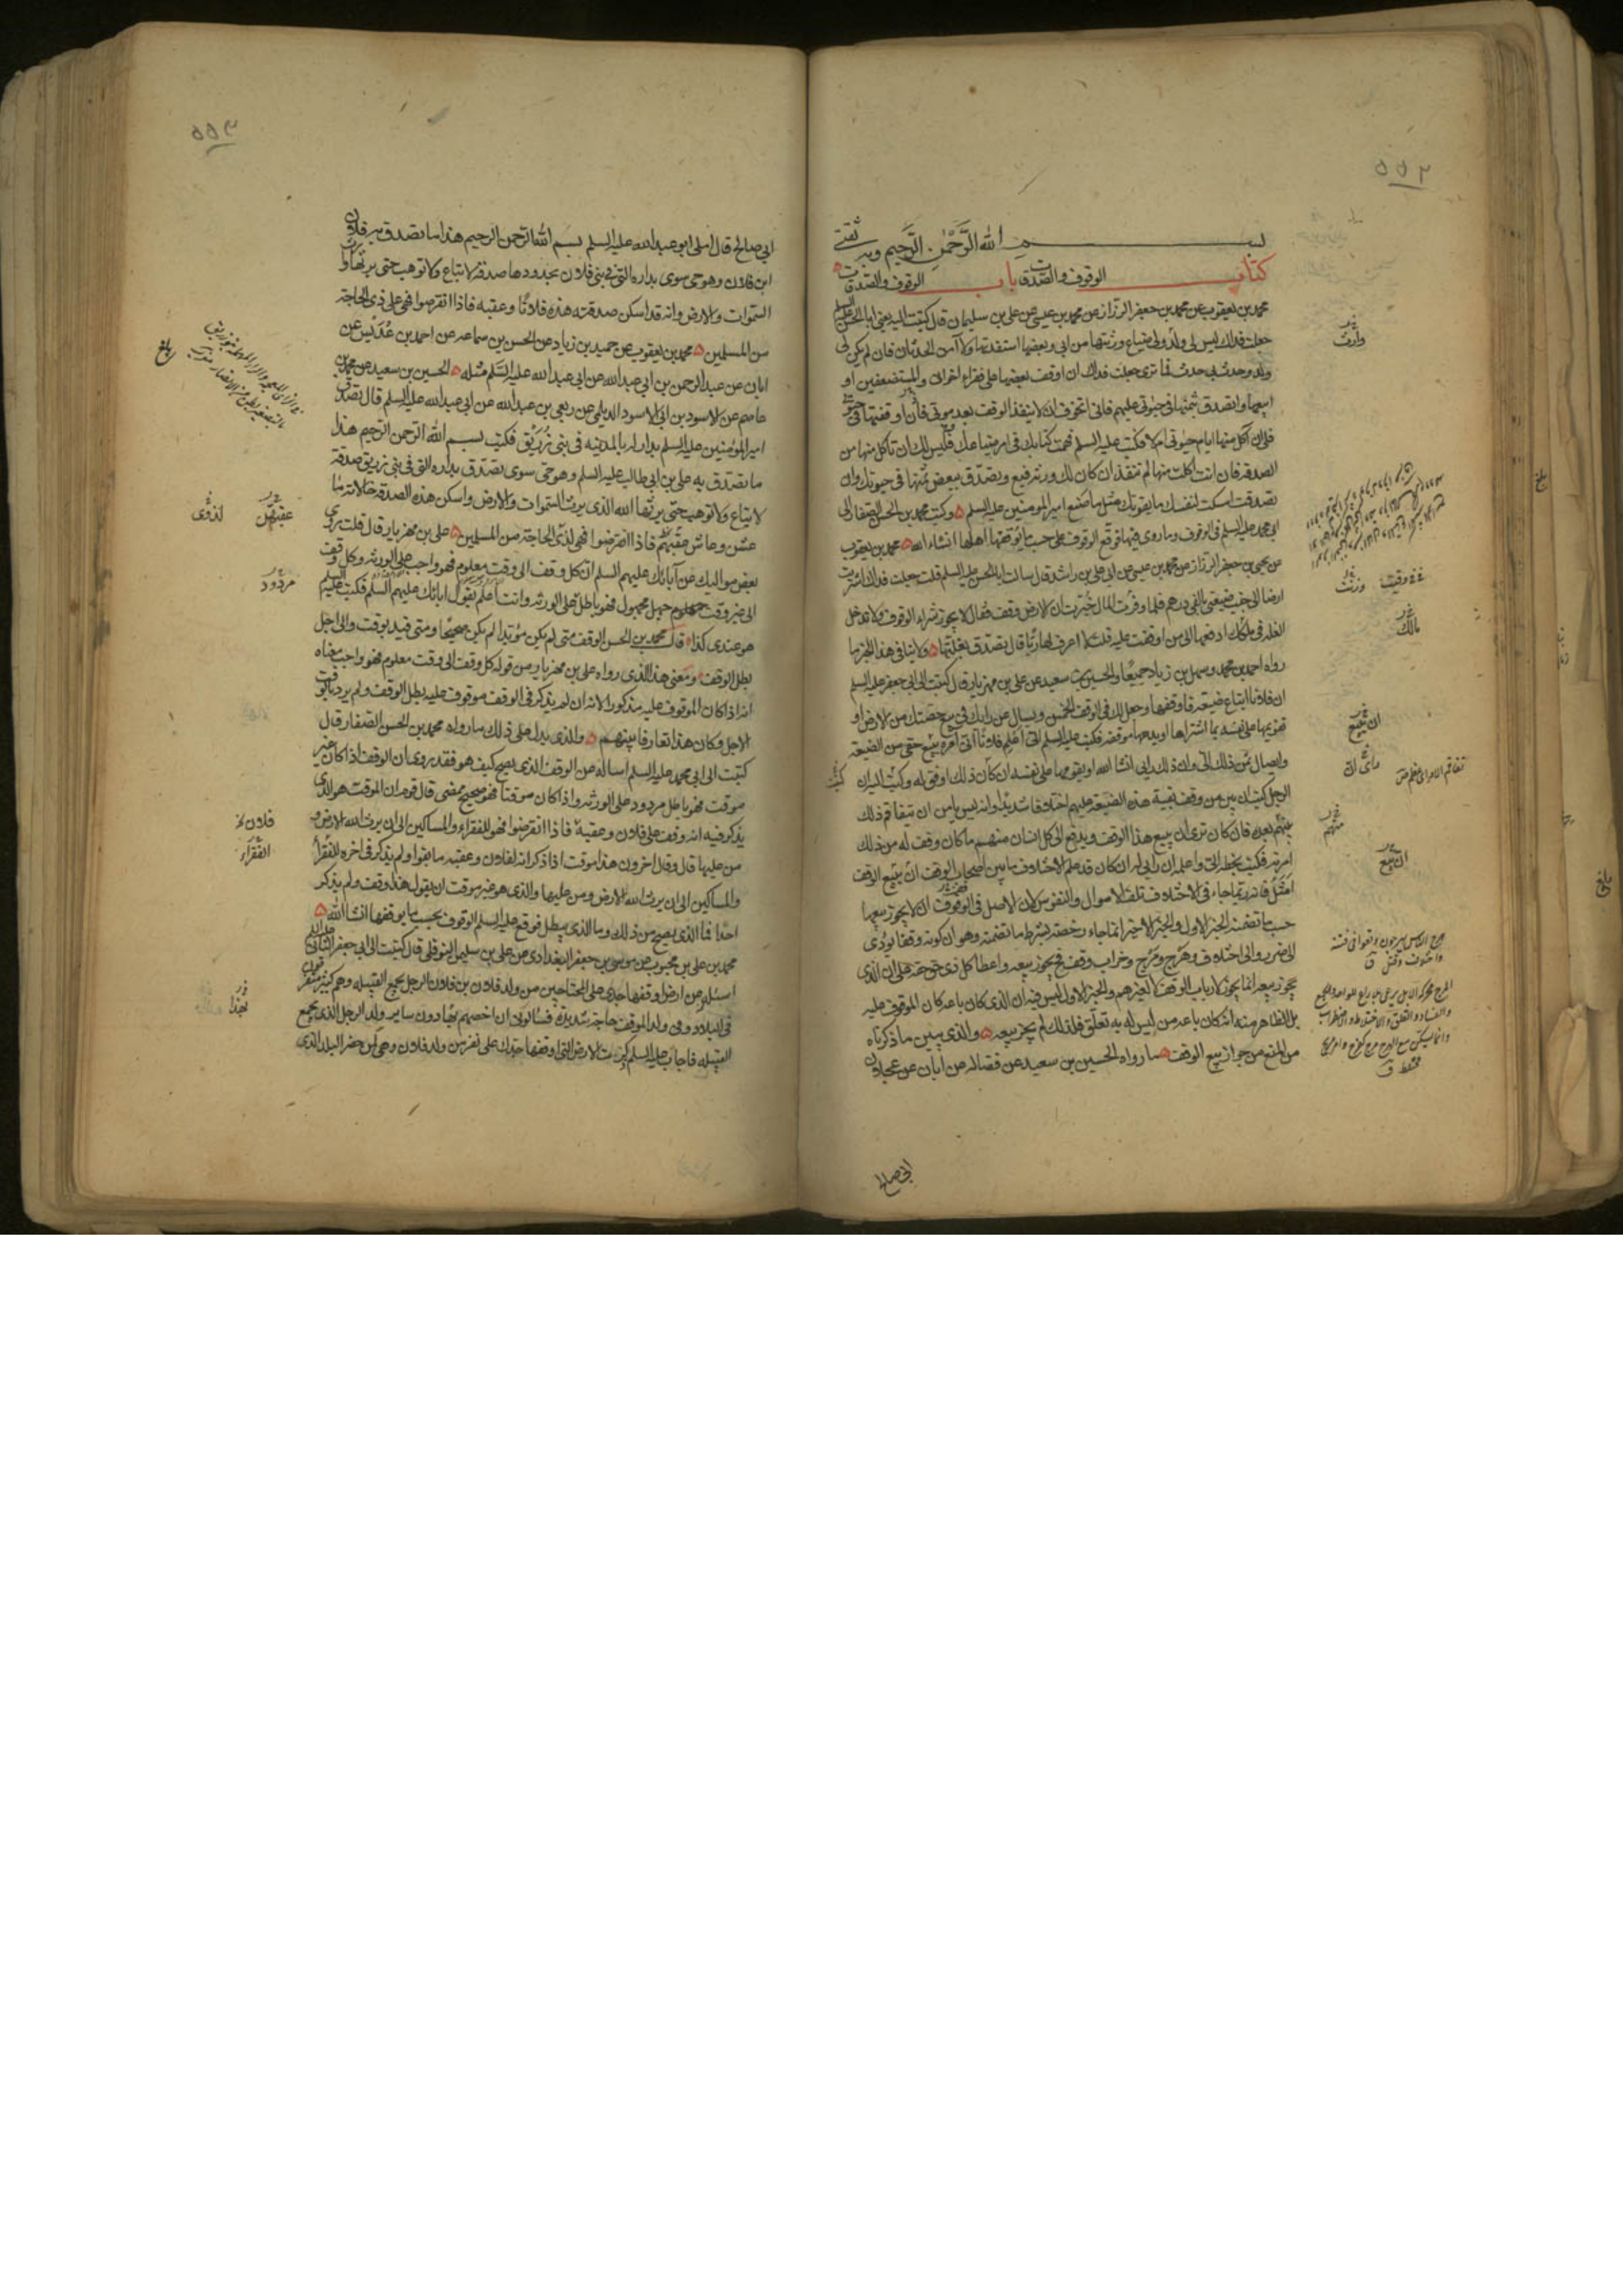 ٥٥٢
بسم الله الرَّحْمٰنِ الرَّحِيمِ وبه ثقتي
كتاب الوقوف والصدقات باب الوقوف والصدقات
محمد بن يعقوب عن محمد بن جعفر الرزاز عن محمد بن عيسى عن علي بن سليمان قال كتبت اليه يعني ابا الحسن عليه السلم
جعلت فداك ليس لي ولد ولي ضياع ورثتها من ابي وبعضها استفدتها ولا آمن الحدثان فان لم يكن لي
ولد وحدث بي حدث فما ترى جعلت فداك ان اوقف بعضها على فقراء اخواني والمستضعفين او
ابيعها واتصدق بثمنها في حيوتي عليهم فاني اتخوف ان لا ينفذ الوقف بعد موتي فان اوقفتها في حيوتي
فلي ان آكل منها ايام حيوتي ام لا فكتب عليه السلم فهمت كتابك في امر ضياعك فليس لك ان تاكل منها من
الصدقة فان انت اكلت منها لم تنفذ ان كان لك ورثة فبع وتصدق ببعض ثمنها في حيوتك وان
تصدقت امسكت لنفسك ما يقوتك مثل ما صنع امير المومنين عليه السلم ٥ وكتب محمد بن الحسن الصفار الى
ابي محمد عليه السلم في الوقوف وما روى فيها فوقع الوقوف على حسب ما يوقفها اهلها انشاء الله ٥ محمد بن يعقوب
عن محمد بن جعفر الرزاز عن محمد بن عيسى عن ابي علي بن راشد قال سالت ابا الحسن عليه السلم قلت جعلت فداك اشتريت
ارضا الى جنب ضيعتي بالفي درهم فلما وفرت المال خبرت ان الارض وقف فقال لا يجوز شراء الوقوف ولا تدخل
الغلة في ملكك ادفعها الى من اوقفت عليه قلت لا اعرف لها ربا قال تصدق بغلتها ٥ ولا ينافي هذا الخبر ما
رواه احمد بن محمد وسهل بن زياد جميعا والحسين بن سعيد عن علي بن مهزيار قال كتبت الى ابي جعفر عليه السلم
ان فلانا ابتاع ضيعة فاوقفها وجعل لك في الوقف الخمس ويسال عن رايك في بيع حصتك من الارض او
تقويمها على نفسه بما اشتراها او يدعها موقفة فكتب عليه السلم الي اعلم فلانا اني آمره ببيع حقي من الضيعة
وايصال ثمن ذلك الي وان ذلك رايي انشا الله او يقومها على نفسه ان كان ذلك اوفق له وكتبت اليه ان
الرجل كتب ان بين من وقف بقية هذه الضيعة عليهم اختلافا شديدا وانه ليس يامن ان يتفاقم ذلك
بينهم بعده فان كان ترى ان يبيع هذا الوقف ويدفع الى كل انسان منهم ما كان وقف له من ذلك
امرته فكتب بخطه الي واعلمه ان رايي له ان كان قد علم الاختلاف ما بين اصحاب الوقف ان يبيع الوقف
امثل فانه ربما جاء في الاختلاف تلف الاموال والنفوس لان الاصل في الوقوف ان لا يجوز بيعها
حسب ما تضمنه الخبر الاول والخبر الاخير انما جاء رخصة بشرط ما تضمنه وهو ان كونه وقفا يودي
الى ضرر والى اختلاف وهرج ومرج وخراب وقف فح يجوز بيعه واعطا كل ذي حق حقه على ان الذي
يجوز بيعه انما يجوز لارباب الوقف لا لغيرهم والخبر الاول ليس فيه ان الذي كان باعه كان الموقوف عليه
بل الظاهر منه انه كان باعه من ليس له به تعلق فلذلك لم يجز بيعه ٥ والذي يبين ما ذكرناه
من المنع من جواز بيع الوقف ٥ ما رواه الحسين بن سعيد عن فضالة عن ابان عن عجلان
ابي صالح
وارث
ورثت
مالك
ان تبيع
منهم
ان يبيع
٥٥٣
ابي صالح قال املى ابو عبد الله عليه السلم بسم الله الرحمن الرحيم هذا ما تصدق به فلان
ابن فلان وهو حي سوى بداره التي في بني فلان بحدودها صدقة لا تباع ولا توهب حتى يرثها وارث
السموات والارض وانه قد اسكن صدقته هذه فلانا وعقبه فاذا انقرضوا فهي على ذي الحاجة
من المسلمين ٥ محمد بن يعقوب عن حميد بن زياد عن الحسن بن سماعه عن احمد بن عديس عن
ابان عن عبد الرحمن بن ابي عبد الله عن ابي عبد الله عليه السلم مثله ٥ الحسين بن سعيد عن محمد بن
عاصم عن الاسود بن ابي الاسود الديلي عن ربعي بن عبد الله عن ابي عبد الله عليه السلم قال تصدق
امير المؤمنين عليه السلم بدار له بالمدينه في بني زريق فكتب بسم الله الرحمن الرحيم هذا
ما تصدق به علي بن ابي طالب عليه السلم وهو حي سوى تصدق بداره التي في بني زريق صدقة
لا تباع ولا توهب حتى يرثها الله الذي يرث السموات والارض واسكن هذه الصدقة خالاته ما
عشن وعاش عقبهم فاذا انقرضوا فهي لذي الحاجة من المسلمين ٥ علي بن مهزيار قال قلت روى
بعض مواليك عن آبائك عليهم السلم ان كل وقف الى وقت معلوم فهو واجب على الورثه وكل وقف
الى غير وقت جهل مجهول فهو باطل على الورثه وانت اعلم بقول ابائك عليهم السلم فكتب عليه السلم
هو عندي كذا ٥ قال محمد بن الحسن الوقف متى لم يكن مؤبدا لم يكن صحيحا ومتى قيد بوقت والى اجل
بطل الوقف ومعنى هذا الذي رواه علي بن مهزيار من قوله كل وقف الى وقت معلوم فهو واجب معناه
انه اذا كان الموقوف عليه مذكورا لانه ان لم يذكر في الوقف موقوف عليه بطل الوقف ولم يرد بالوقت
الاجل وكان هذا تعارفا بينهم ٥ والذي يدل على ذلك ما رواه محمد بن الحسن الصفار قال
كتبت الى ابي محمد عليه السلم اساله عن الوقف الذي يصح كيف هو فقد روى ان الوقف اذا كان غير
موقت فهو باطل مردود على الورثه واذا كان موقتا فهو صحيح ممضى قال قوم ان الموقت هو الذي
يذكر فيه انه وقف على فلان وعقبه فاذا انقرضوا فهو للفقراء والمساكين الى ان يرث الله الارض و
من عليها قال وقال اخرون هذا موقت اذا ذكر انه لفلان وعقبه ما بقوا ولم يذكر في اخره للفقراء
والمساكين الى ان يرث الله الارض ومن عليها والذي هو غير موقت ان يقول هذا وقف ولم يذكر
احدا فما الذي يصح من ذلك وما الذي يبطل فوقع عليه السلم الوقوف بحسب ما يوقفها انشا الله ٥
محمد بن علي بن محبوب عن موسى بن جعفر البغدادي عن علي بن سليمان النوفلي قال كتبت الى ابي جعفر الثاني عليه السلم
اسئله عن ارض وقفها جدي على المحتاجين من ولد فلان بن فلان الرجل يجمع القبيله وهم كثير متفرقون
في البلاد وفي ولد الموقف حاجة شديدة فسالوني ان اخصهم بهذا دون ساير ولد الرجل الذي يجمع
القبيله فاجاب عليه السلم ذكرت الارض التي اوقفها جدك على نفر من ولد فلان وهي لمن حضر البلد الذي
بلغ
عقبهن
لذوي
مردود
فلان
الفقراء
بهذا